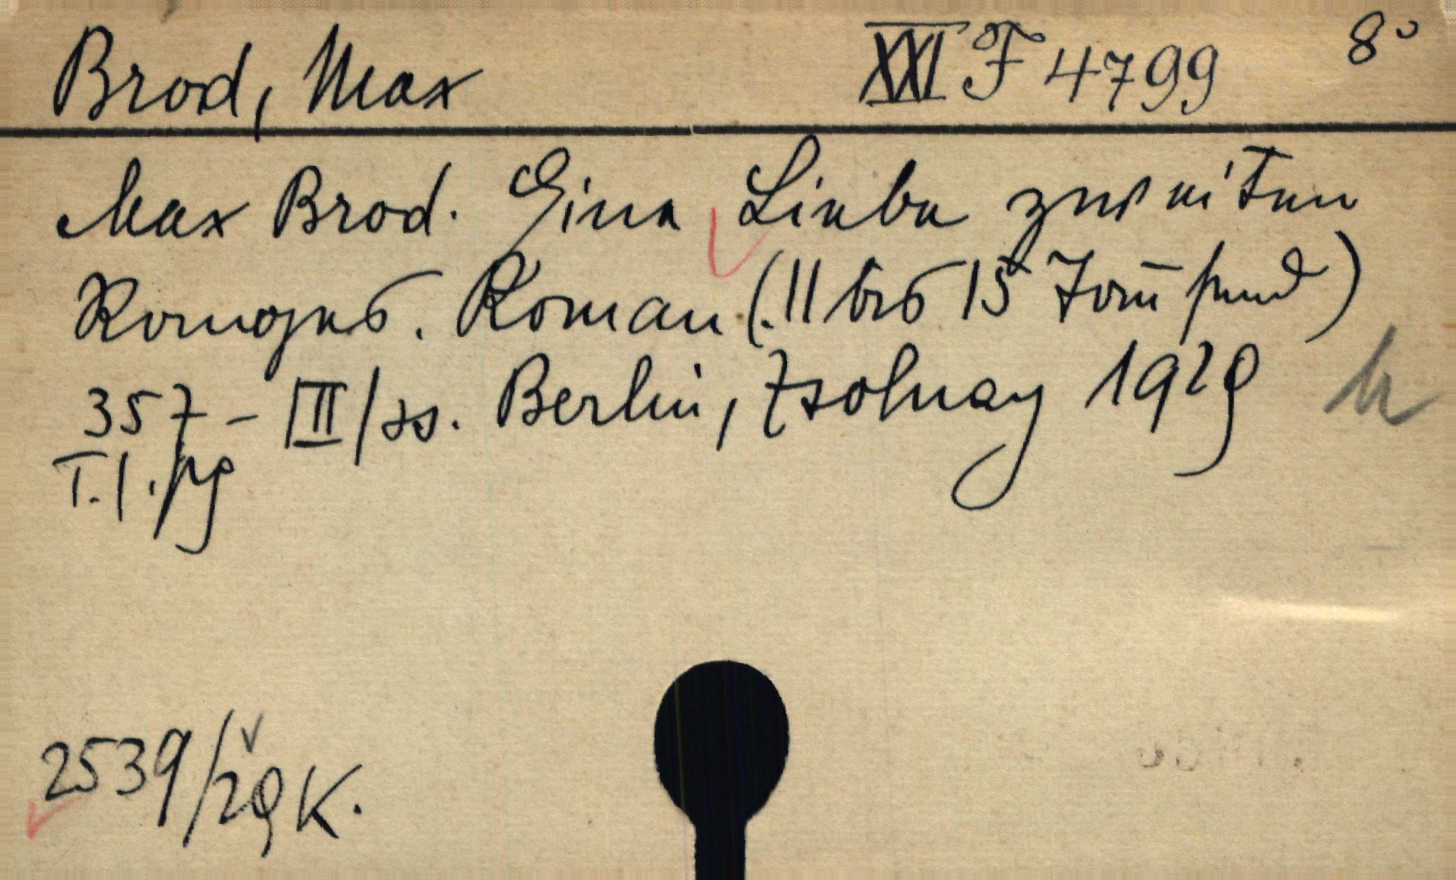 Brod, Max XXI F 4799 8°
Max Brod. Eine Liebe zweiten
Ranges. Roman (11 bis 15 Tausend)
357 - III/ss. Berlin, Zsolnay 1929
T. I. pg
2539/29 K.